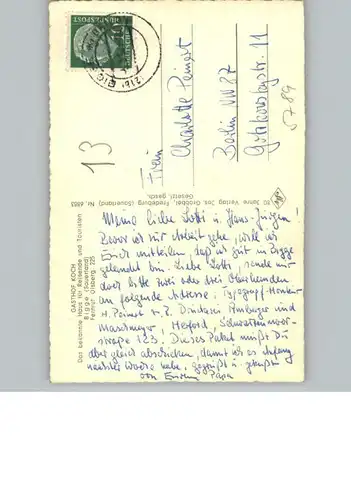 GASTHOF KOCH
Das bekannte Haus für Reisende und Touristen
Bigge (Sauerland)
Fernruf Olsberg 225
10 Jahre Verlag Jos. Grobbel, Fredeburg (Sauerland) Nr. 4853
Gesetzl. gesch.
DEUTSCHE BUNDESPOST
10
(21b) BIGGE
13
5789
Frau
Charlotte Peinert
Berlin NW 87
Gotzkowskystr. 11
Meine liebe Lotti u. Hans-Jürgen!
Bevor wir zur Arbeit gehe, will ich
Euch mitteilen, daß ich gut in Bigge
gelandet bin. Liebe Lotti, sende mir
doch bitte zwei oder drei Oberhemden
an folgende Adresse: Typograff-Monteur
H. Peinert z. Z. Druckerei
und
Herford,
straße 123. Dieses Paket mußt Du
aber gleich abschicken, damit ich es anfang
nächster Woche habe, gegrüßt u. geküßt
von Eurem Papa